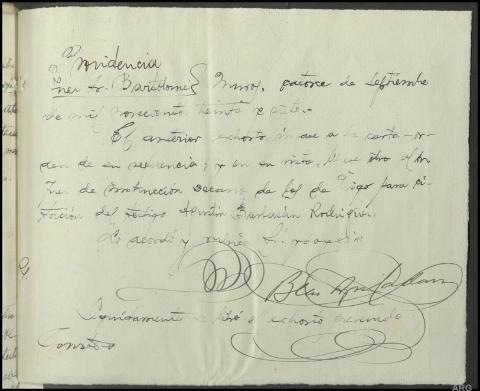 Providencia
Juez Sr. Bartolomé} Muros, catorce de Septiembre
de mil novecientos treinta y siete.-
El anterior exhorto únase a la carta-or-
den de su referencia; y en su vista, líbrese otro al Sr.
Juez de Instrucción Decano de los de Vigo para ci-
tación del testigo Agustín Rodríguez.
Lo acordó y rubrica S.Sª doy fe.
Seguidamente se libró el exhorto prevenido
ARG